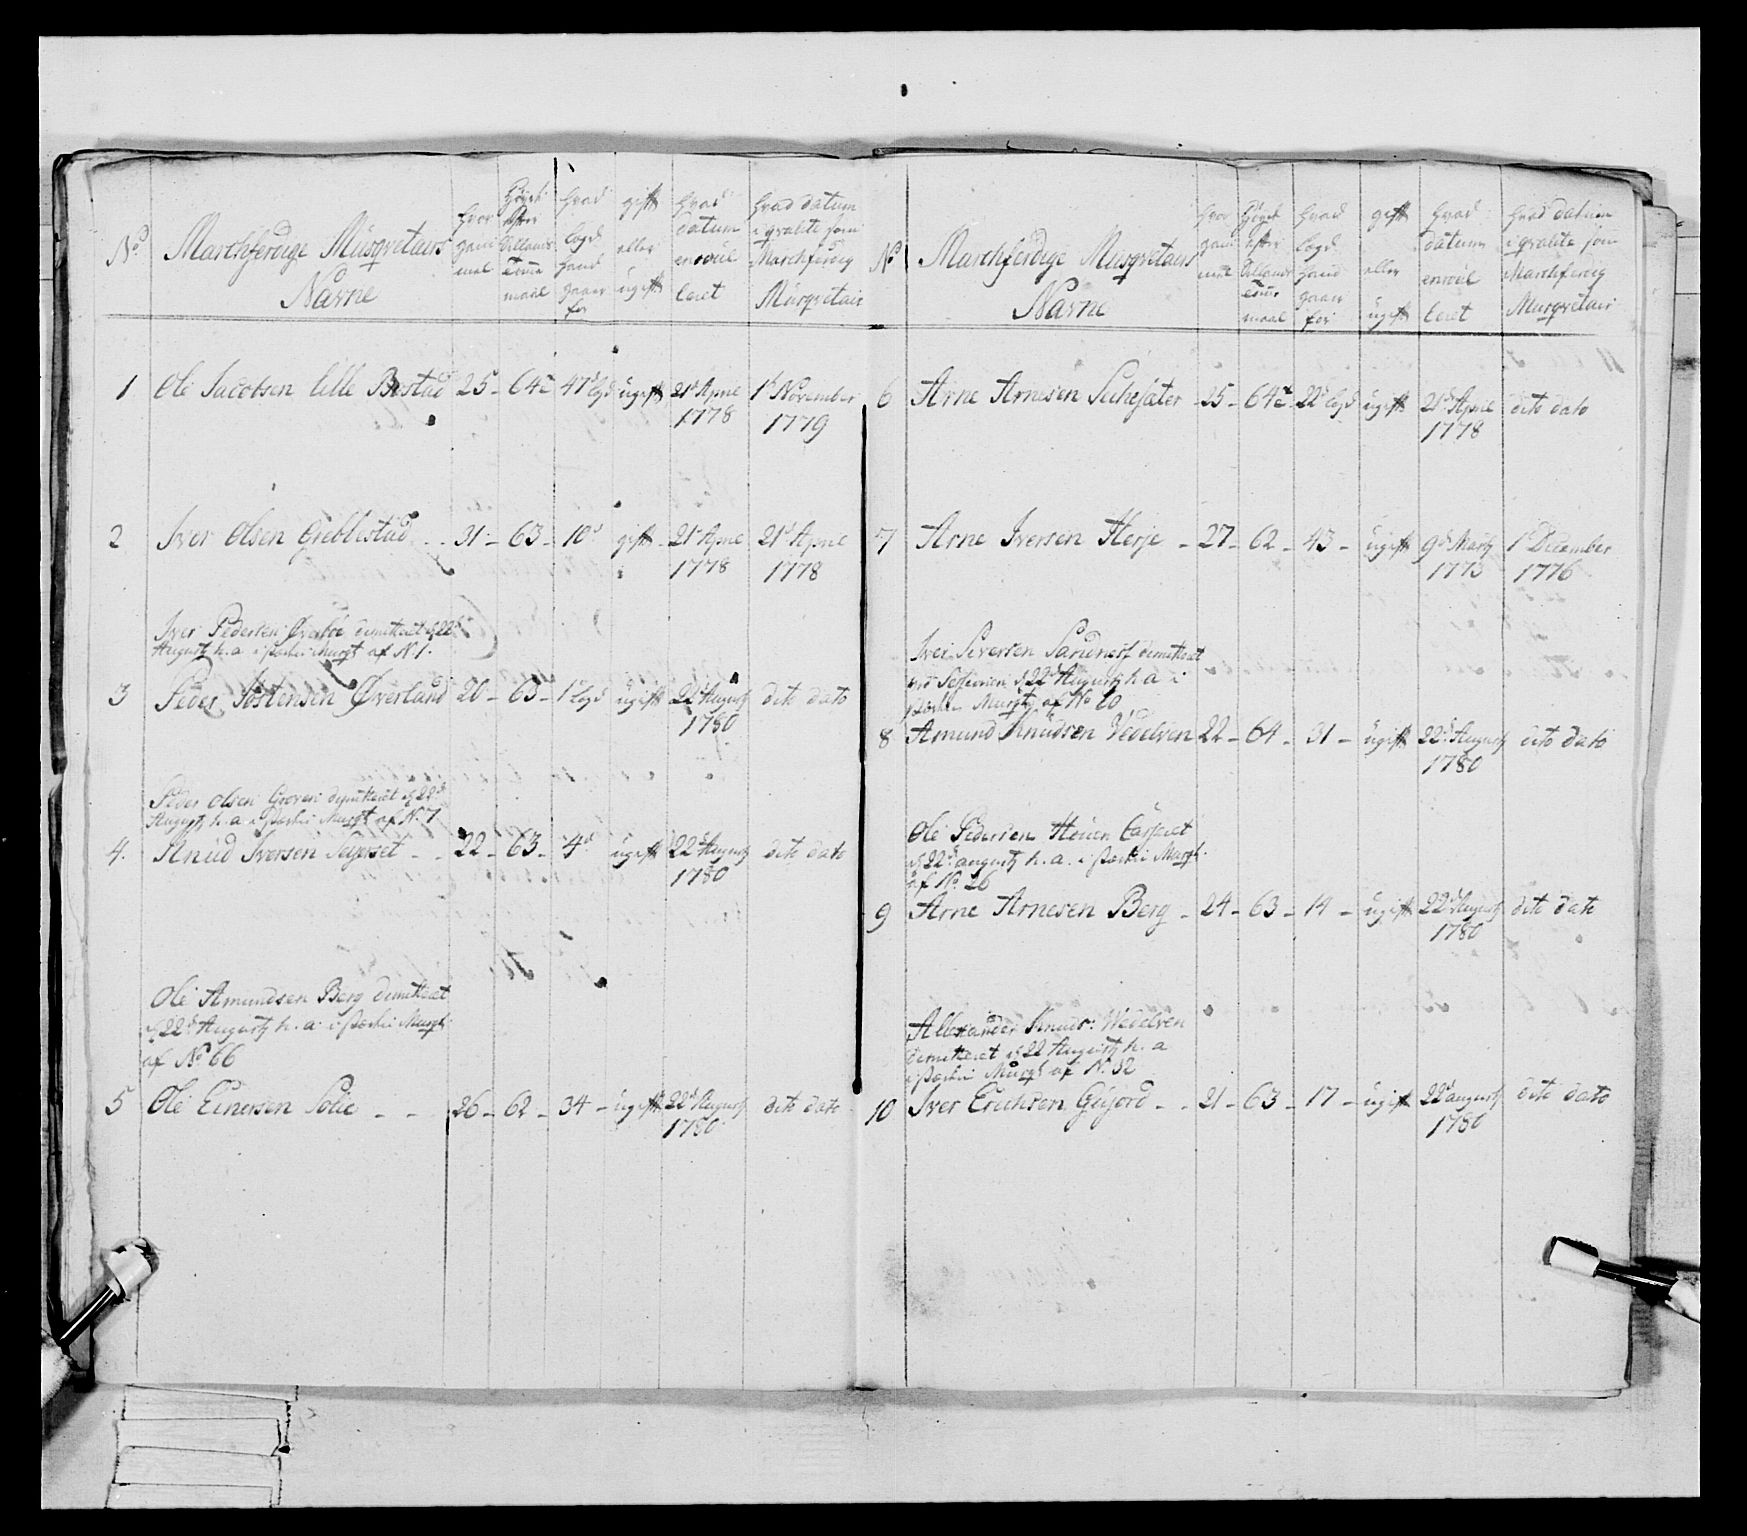 No
Marchferdige Musqvetairs
Navne
hvor
gam
mel
Høyde
efter
Sællands
Tomme
maal
hvad
Lægd
hand
gaaer
for
gift
eller
ugift
hvad
datum
enroul
leret
hvad datum
i qvalite som
Marchferdig
Musqvetair
1 Ole Jacobsen lille Bostad 25 - 64½ 47d lægd ugift 21d Aprıl 1st November
1778 1779
2 Iver Olsen Grebbestad - - 31 - 63 - 10d gift - 21d April 21d April
1778 1778
Iver Pedersen Øverbøe dimitteret d 22d
Augustj h. a. i stæden Musqt af N. 1.
3 Peder Tostensen Øverland 20 - 63 - 1st lægd ugift 22d Augustj dito dato
1780
Peder Olsen Groven dimitteret d 22d
Augustj h. a. i stæden Musqt af N. 7
4. Knud Iversen - - 22 - 63 - 4d ugift 22d Augustj dito dato
1780
Ole Amundsen Berg dimitteret
d 22d Augustj h. a. i stæden Musqt
af No 66
5 Ole Einersen Solie - - 26 - 62 - 34 - ugift 22d Augustj dito dato
1780
No
Marchferdige Musqvetairs
Navne
hvor
gam
mel
Høyde
efter
Sællands
Tomme
maal
hvad
Lægd
hand
gaaer
for
gift
eller
ugift
hvad
datum
enroul
leret
hvad datum
i qvalite som
Marchferdig
Musqvetair
6 Arne Arnesen 25 - 64½ 22d lægd ugift 21d April dito dato
1778
7 Arne Iversen Herje - 27 - 62 - 43 - ugift 9d Martj 1st December
1773 1776
Iver Siversen dimitteret
ved Sessionen d 22d Augustj h. a. i
stæden Musqt af No 20
8 Amund Knudsen Vedelven 22 - 64 - 31 - ugift 22d Augustj dito dato
1780
Ole Pedersen Houen Casseret
d 22d augustj h. a. i stæden Musqt
af No 26
9 Arne Arnesen Berg - 24 - 63 - 14 - ugift 22d Augustj dito dato
1780
Allexander Knuds: Wedelven
dimitteret d 22 Augustj h. a
i stæden Musqt af N. 32
10 Iver Erichsen Gujord - - 21 - 63 - 17 - ugift 22d augustj dito dato
1780